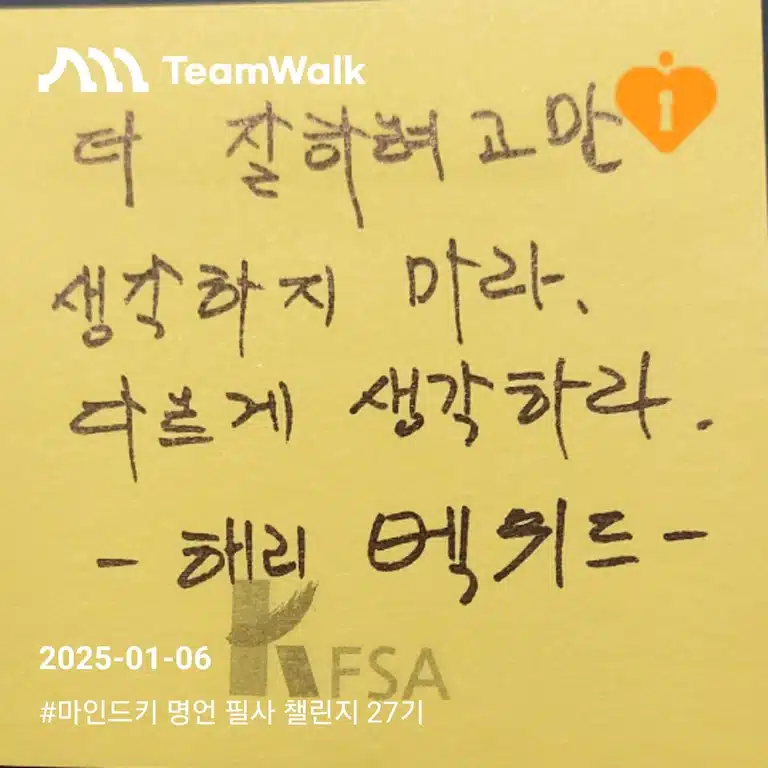 TeamWalk
더 잘하려고만
생각하지 마라.
다르게 생각하라.
- 해리 벡위드 -
KFSA
2025-01-06
#마인드키 명언 필사 챌린지 27기